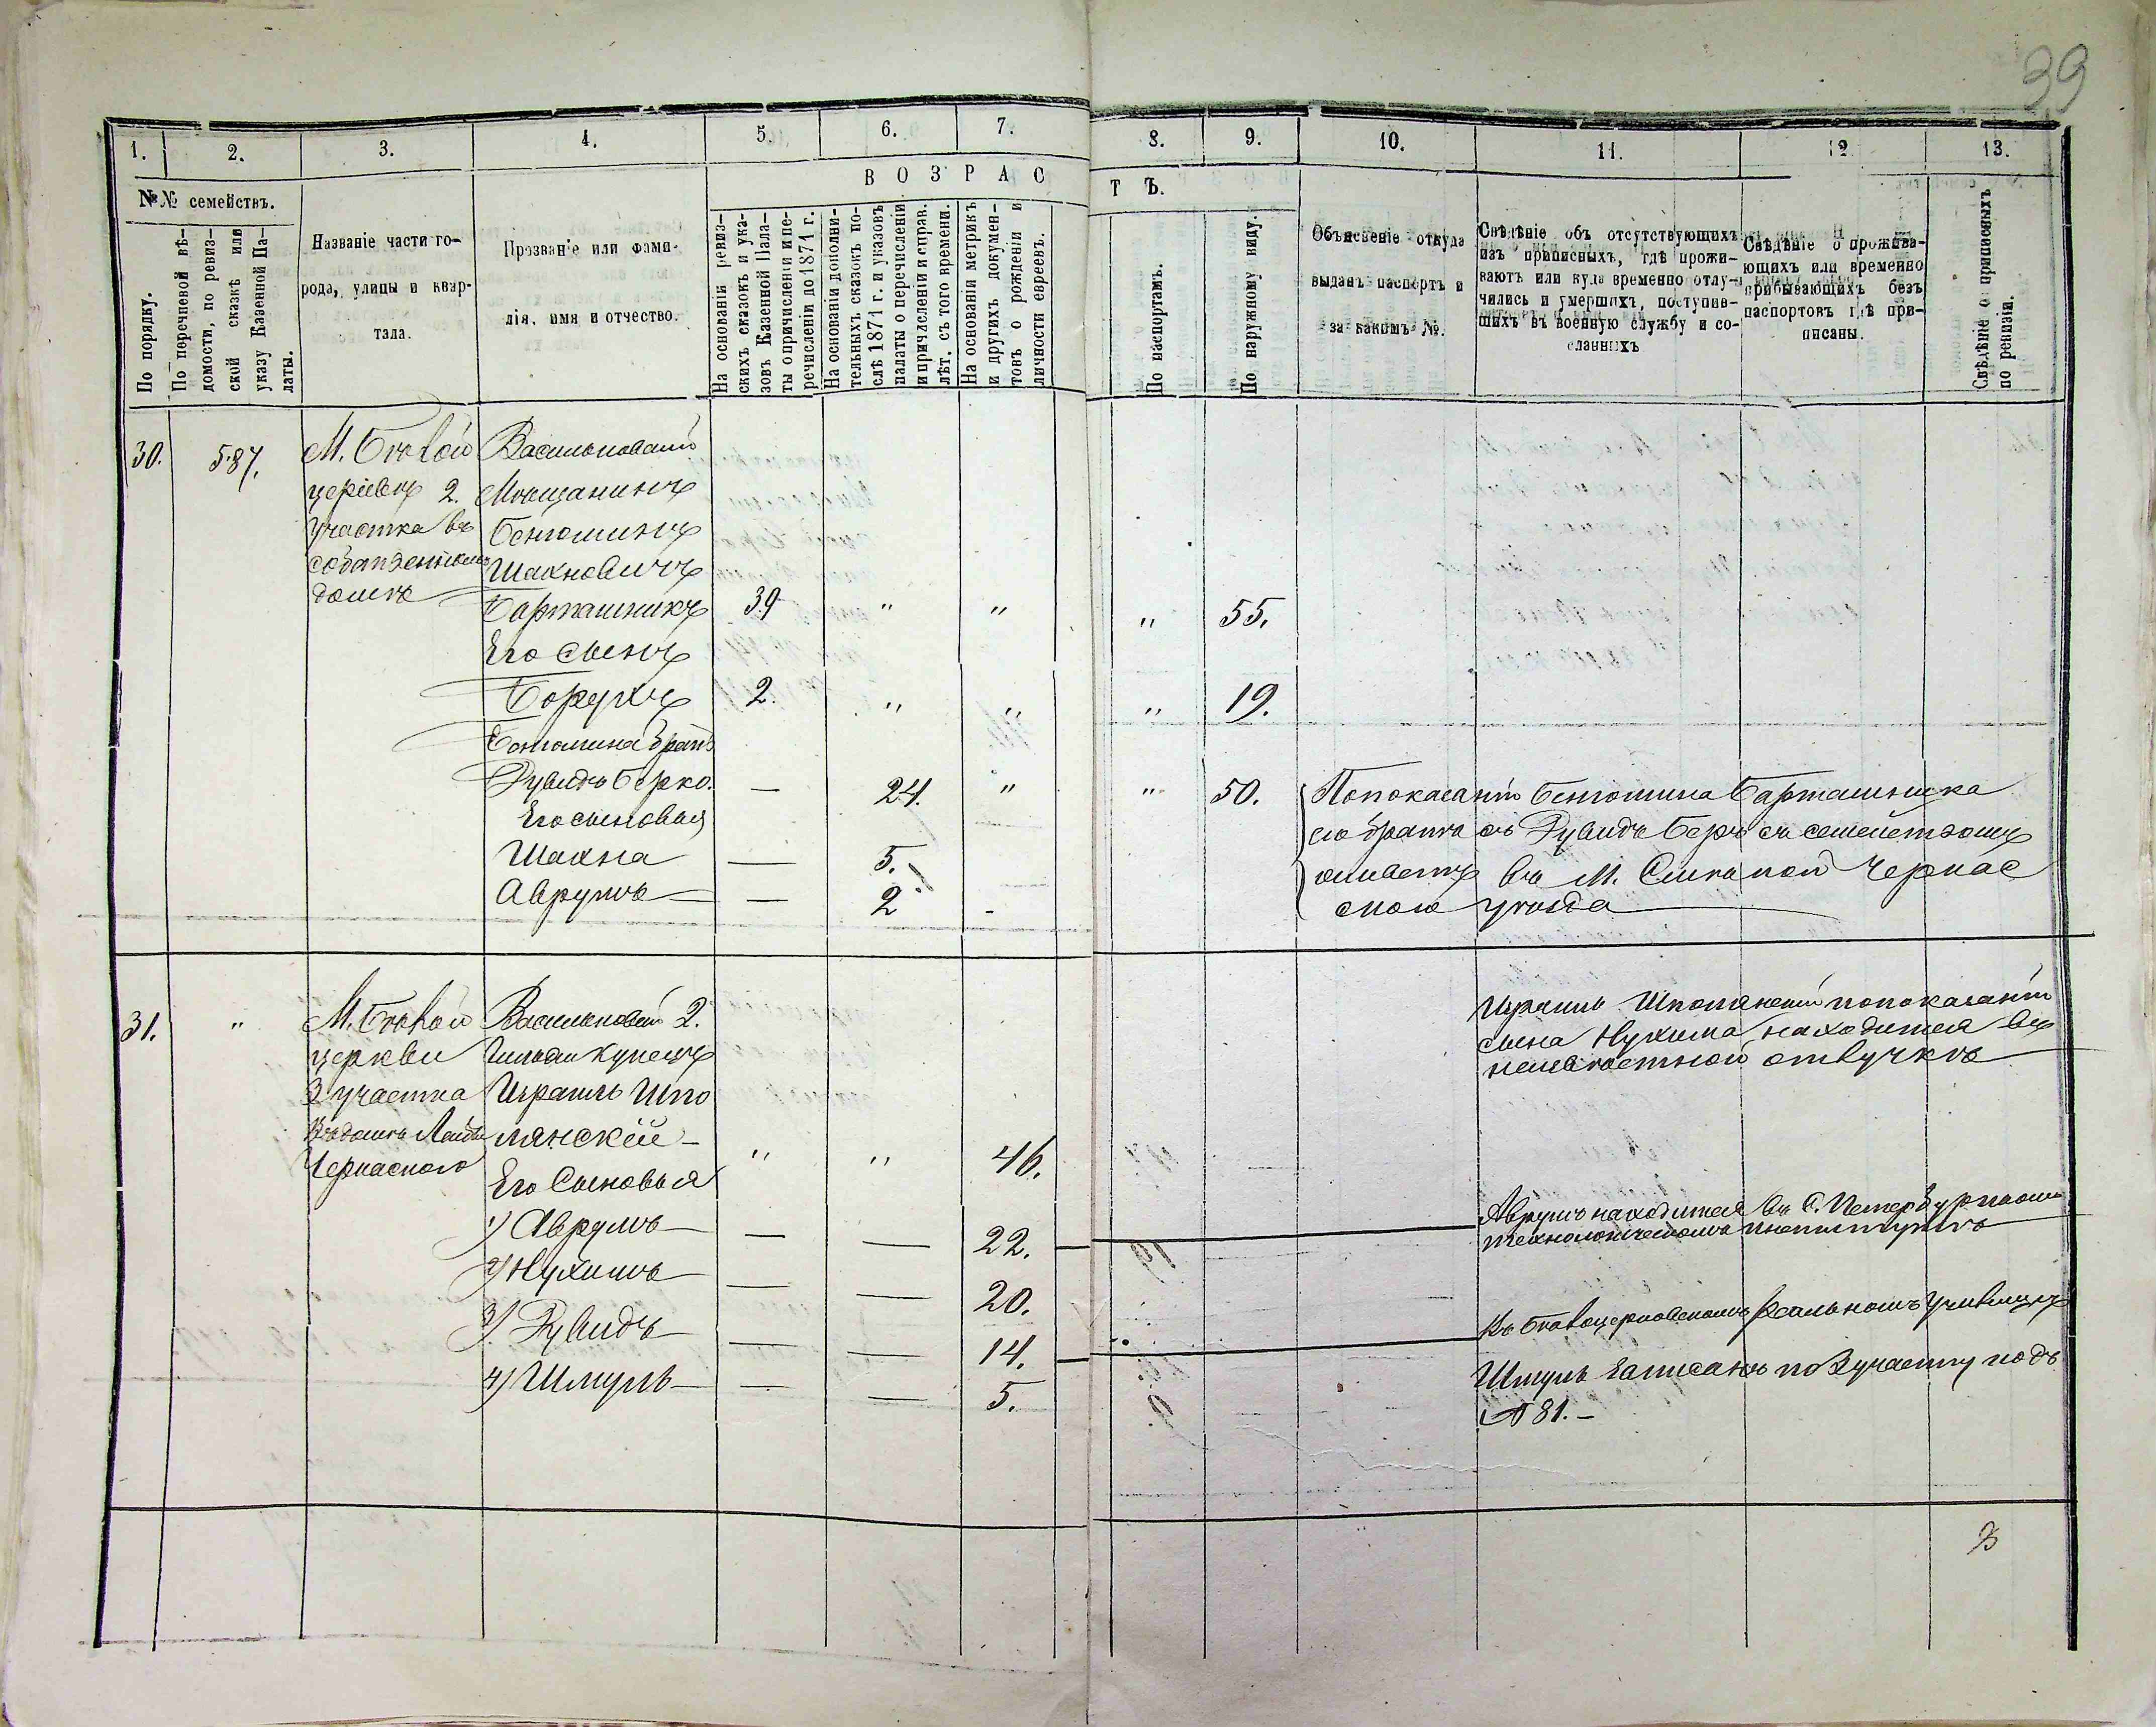 39
1. 2. 3. 4. 5. 6. 7. 8. 9. 10. 11. 12. 13.
№№ семействъ.
По порядку.
По перечневой вѣ-
домости, по ревиз-
ской сказкѣ или
указу Казенной Па-
латы.
Названіе части го-
рода, улицы и квар-
тала.
Прозваніе или фами-
лія, имя и отчество.
ВОЗРАС
ТЪ.
На основаніи ревиз-
скихъ сказокъ и ука-
зовъ Казенной Пала-
ты о причисленіи и пе-
речисленіи до 1871 г.
На основаніи дополни-
тельныхъ сказокъ по-
слѣ 1871 г. и указовъ
палаты о перечисленіи
и причисленіи и справ.
лѣт. съ того времени.
На основаніи метрикъ
и другихъ докумен-
товъ о рожденіи и
личности евреевъ.
По паспортамъ.
По наружному виду.
Объясненіе откуда
выданъ паспортъ и
за какимъ №.
Свѣдѣніе объ отсутствующихъ
изъ приписныхъ, гдѣ прожи-
ваютъ или куда временно отлу-
чились и умершихъ, поступив-
шихъ въ военную службу и со-
сланныхъ
Свѣдѣніе о прожива-
ющихъ или временно
прибывающихъ безъ
паспортовъ гдѣ при-
писаны.
Свѣдѣніе о приписныхъ
по ревизіи.
30. 587. М. Бѣлой Васильковскій
церквѣ 2. Мѣщанинъ
участка въ Беньюминъ
собственномъ Шахновичъ
домѣ Барташникъ 39 " " " 55.
Его сынъ
Борухъ 2. " " " 19.
Беньюмина братъ
Дувидъ Берко. — 24. " " 50. По показанію Беньюмина Барташника
Его сыновья его братъ Дувидъ Беръ съ семействомъ
Шахна — 5. живетъ въ М. Смѣлой Черкас
Аврумъ — 2 - скаго уѣзда
31. " М. Бѣлой Васильковскій 2.
церкви Гильдіи Купецъ
2 участка Израиль Шпо
въ домѣ лянскій —
Черкаскаго " " 46.
Израиль Шполянскій по показанію
сына Нухима находится въ
неизвѣстной отлучкѣ
Его Сыновья
1) Аврумъ — — — 22. Аврумъ находится въ С. Петербургскомъ
технологическомъ институтѣ
2) Нухимъ — — — 20.
3) Дувидъ — — — 14. Въ Бѣлоцерковскомъ реальномъ училищѣ
4) Шмуль — — — 5. Шмуль записанъ по 2 участку подъ
№ 81. —